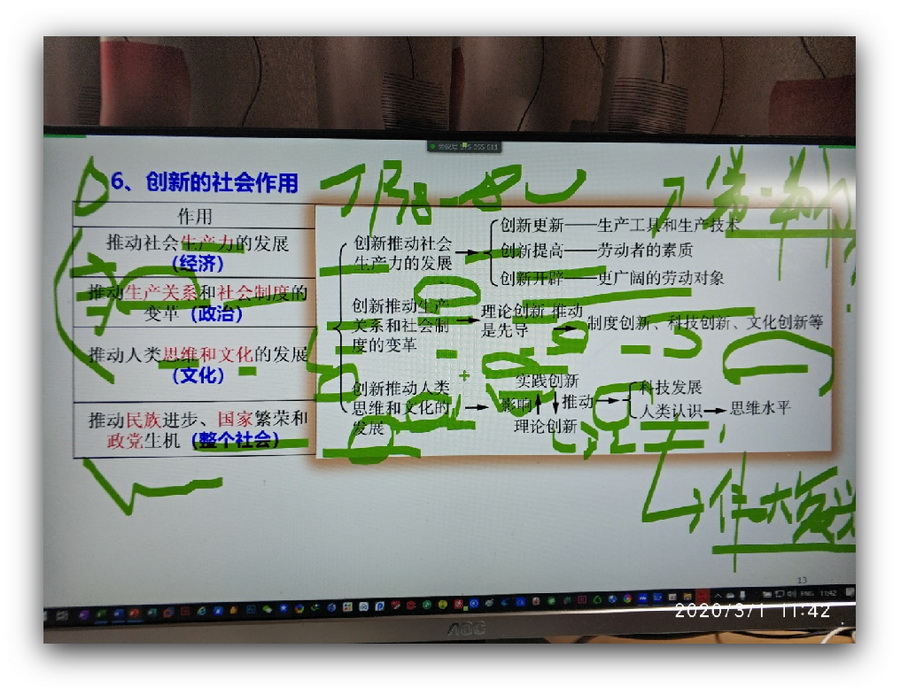 6、创新的社会作用
作用
推动社会生产力的发展
（经济）
推动生产关系和社会制度的
变革（政治）
推动人类思维和文化的发展
（文化）
推动民族进步、国家繁荣和
政党生机（整个社会）
创新推动社会
生产力的发展
创新更新——生产工具和生产技术
创新提高——劳动者的素质
创新开辟——更广阔的劳动对象
创新推动生产
关系和社会制
度的变革
理论创新 推动
是先导
制度创新、科技创新、文化创新等
创新推动人类
思维和文化的
发展
实践创新
影响 推动
理论创新
科技发展
人类认识 思维水平
伟大
13
11:42
2020/3/1 11:42
AOC